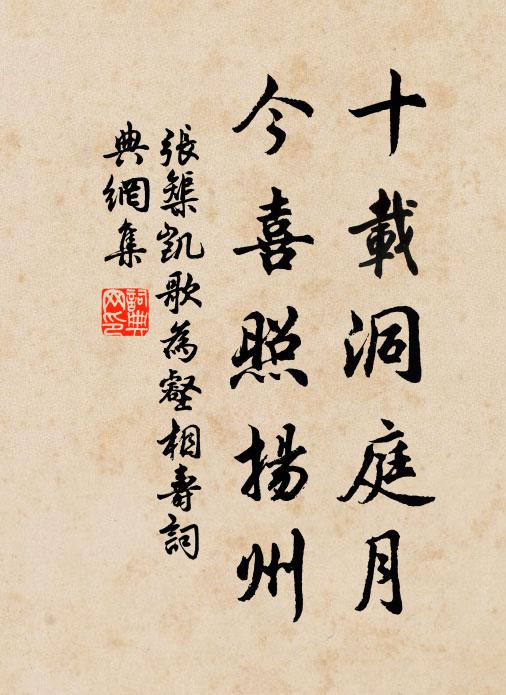 十載洞庭月
今喜照揚州
張榘凱歌為壑相壽詞
典網集
詞典网印